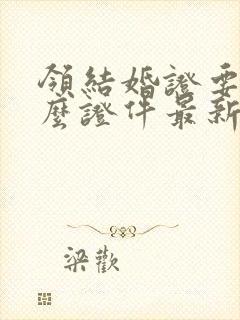 領結婚證要
麼證件最新
梁歡